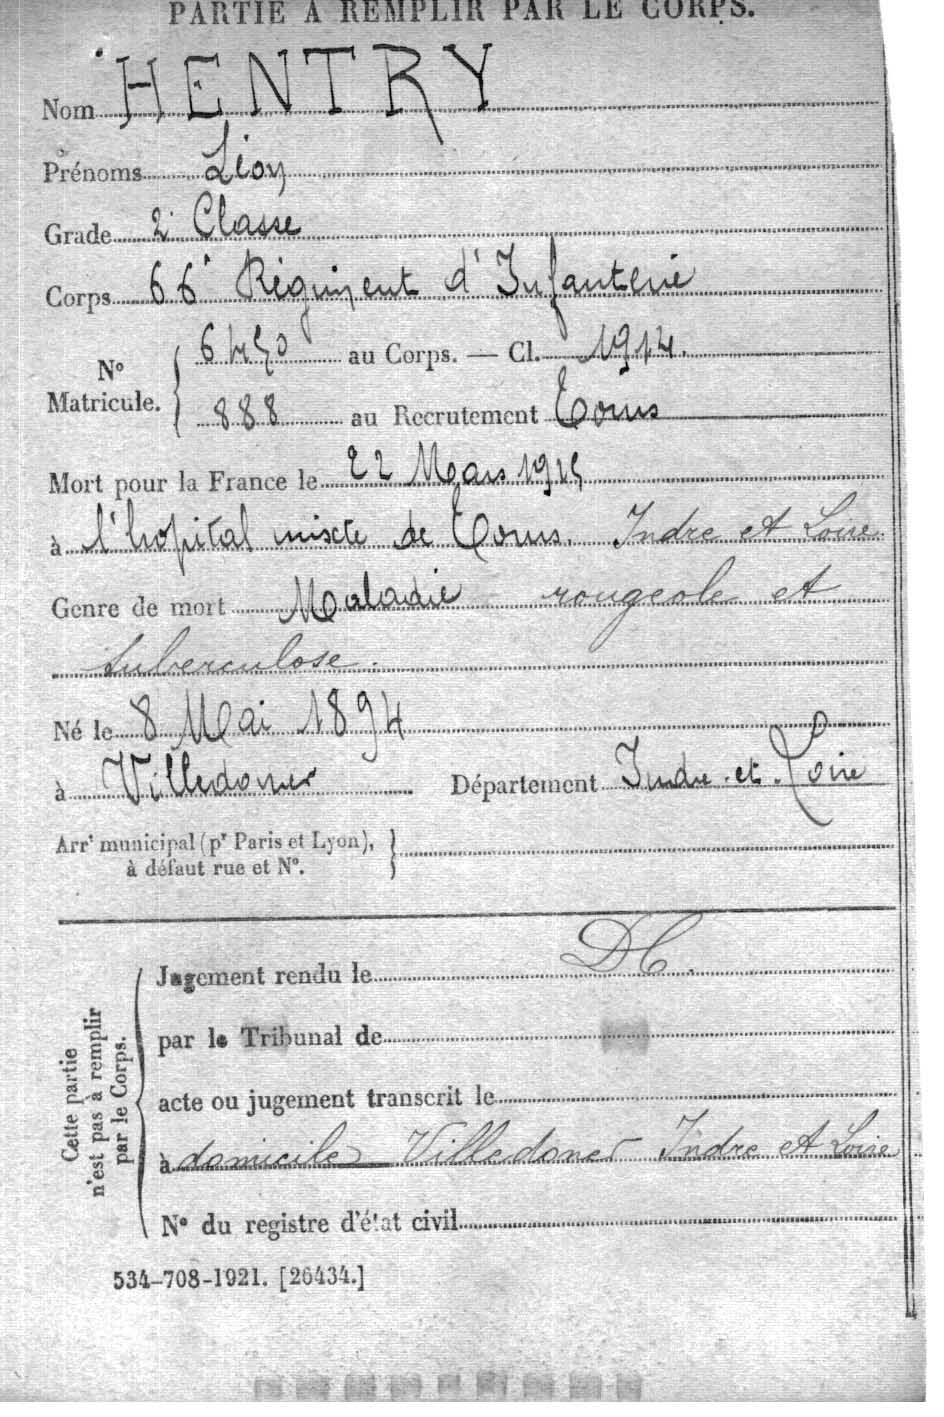 PARTIE À REMPLIR PAR LE CORPS.
Nom HENTRY
Prénoms Léon
Grade 2e Classe
Corps 66e Régiment d'Infanterie
N° Matricule. 6450 au Corps. — Cl. 1914.
888 au Recrutement Tours
Mort pour la France le 22 Mars 1915
à l'hopital mixte de Tours. Indre et Loire
Genre de mort Maladie rougeole et
tuberculose.
Né le 8 Mai 1894
à Villedomer Département Indre-et-Loire
Arrt municipal (pr Paris et Lyon),
à défaut rue et N°.
Jugement rendu le DC.
par le Tribunal de
acte ou jugement transcrit le
à domicile Villedomer Indre et Loire
N° du registre d'état civil
Cette partie
n'est pas à remplir
par le Corps.
534-708-1921. [26434.]